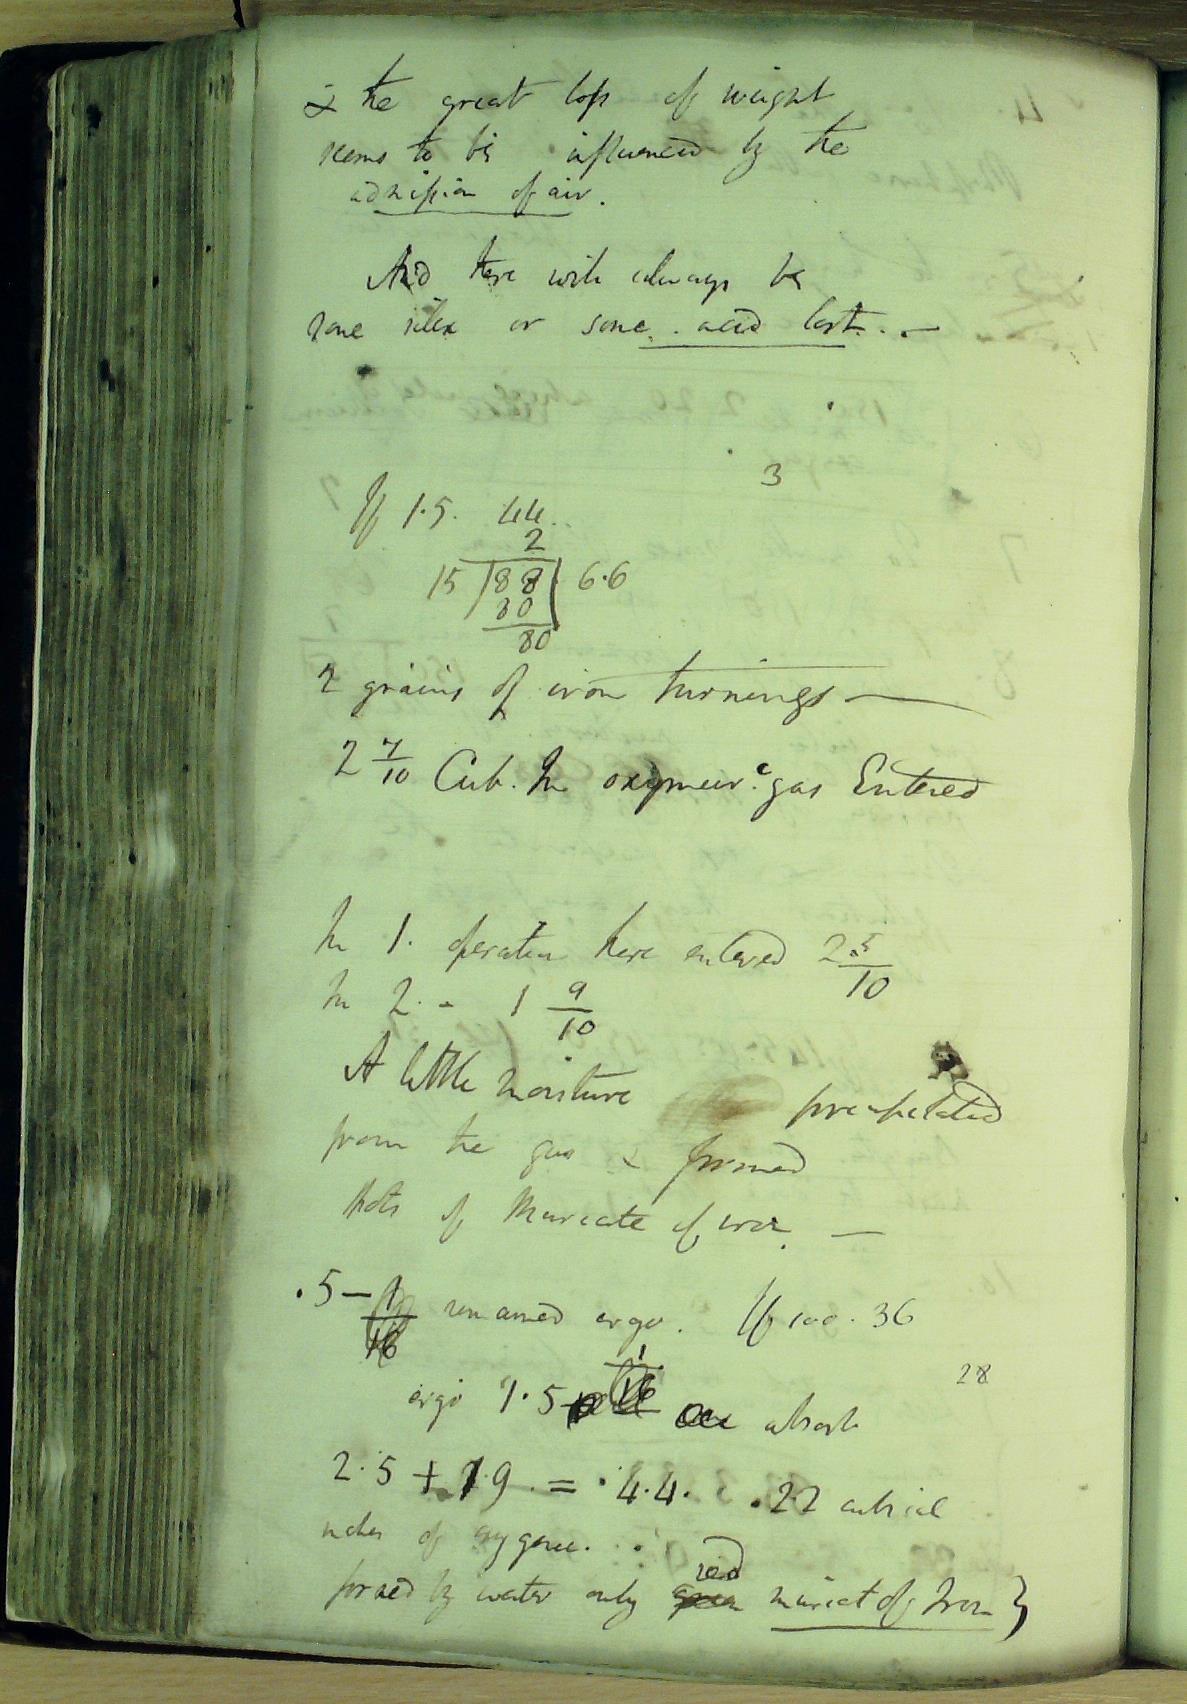 & the great loss of weight
seems to be influenced by the
admission of air.
And there will always be
some silex or some acid lost. —
3
If 1.5. 44..
2
15 | 88 | 6.6
80
80
2 grains of iron turnings —
2 7/10 Cub. In oxymur.c gas Entered
In 1. operation there entered 2.5/10
In 2. - 1 9/10
A little moisture precipitated
from the gas & formed
spots of Muriate of iron. —
.5 — 1/16 remained ergo. If 100. 36
28
ergo 1.5 1/16 absorb
2.5 + 1.9. = .4.4. .22 cubical
inches of oxygene.
red
formed by water only green muriat of Iron }